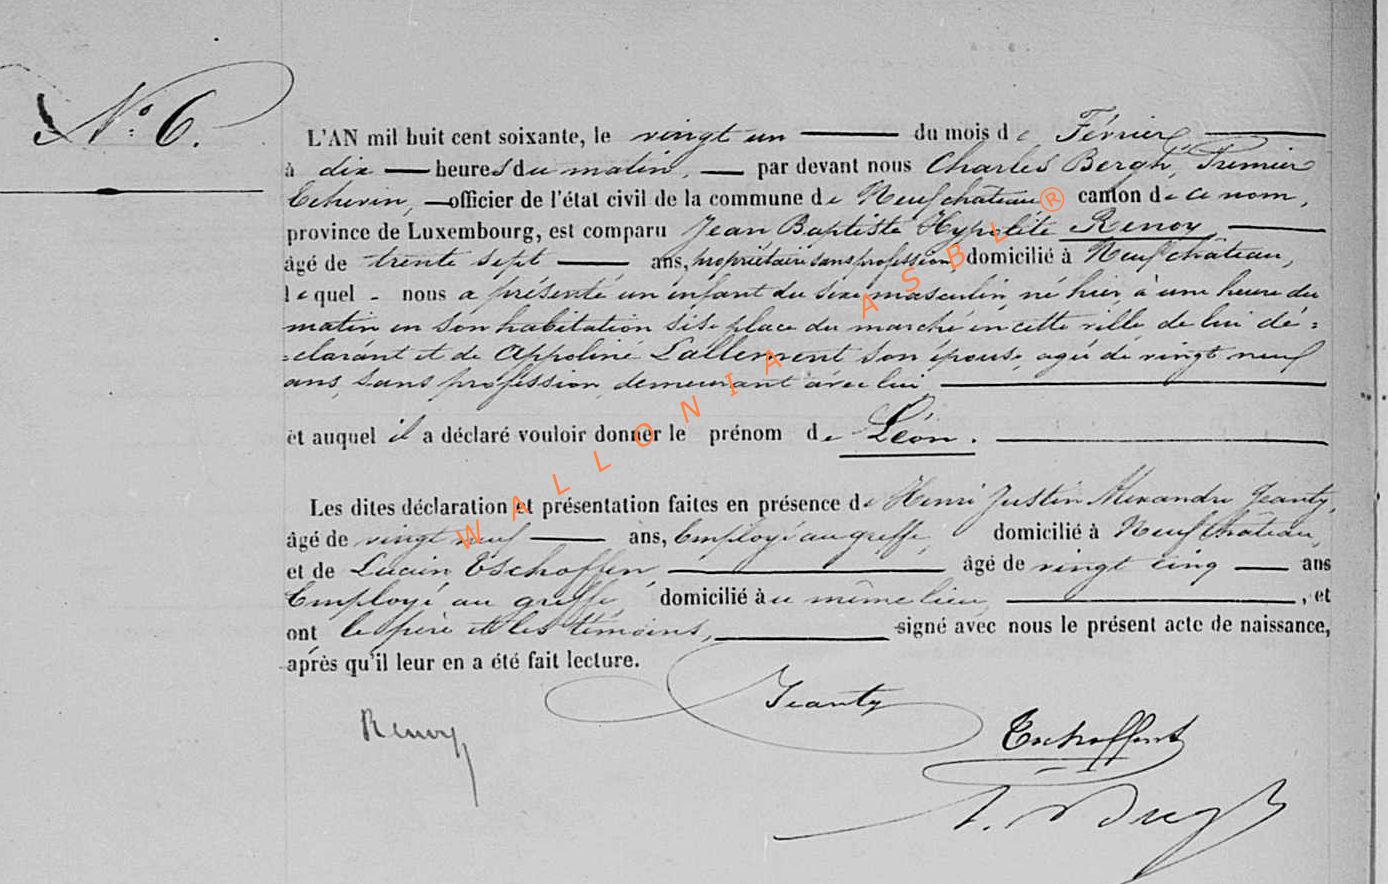 N° 6.
L'AN mil huit cent soixante, le vingt un du mois de Février
à dix heures du matin, par devant nous Charles Bergh, Premier
Echevin, officier de l'état civil de la commune de Neufchateau canton de ce nom,
province de Luxembourg, est comparu Jean Baptiste Hypolite Renoy,
âgé de trente sept ans, propriétaire sans profession, domicilié à Neufchâteau,
lequel nous a présenté un enfant du sexe masculin, né hier, à une heure du
matin en son habitation sise place du marché en cette ville de lui dé=
=clarant et de Appoline Lallement son épouse, agée de vingt neuf
ans, sans profession, demeurant avec lui
et auquel il a déclaré vouloir donner le prénom de Léon.
Les dites déclaration et présentation faites en présence de Henri Justin Alexandre Jeanty,
âgé de vingt neuf ans, Employé au greffe, domicilié à Neufchâteau,
et de Lucien Tschoffen, âgé de vingt cinq ans
Employé au greffe, domicilié au même lieu, , et
ont le père et les témoins, signé avec nous le présent acte de naissance,
après qu'il leur en a été fait lecture.
Jeanty
Renoy
Tschoffen
WALLONIA ASBL ®